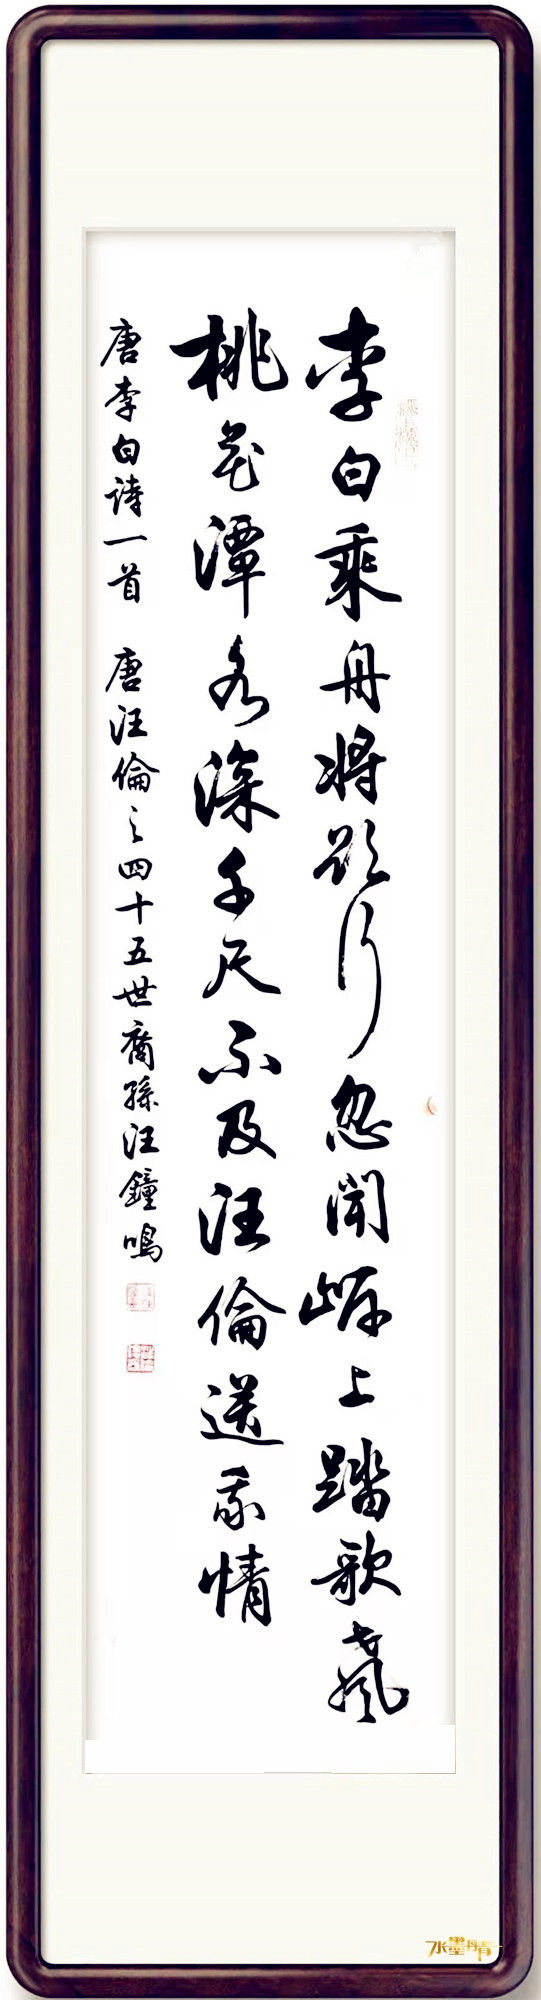 李白乘舟將欲行忽聞岸上踏歌聲
桃花潭水深千尺不及汪倫送我情
唐李白詩一首 唐汪倫之四十五世裔孫汪鐘鳴
水墨丹青